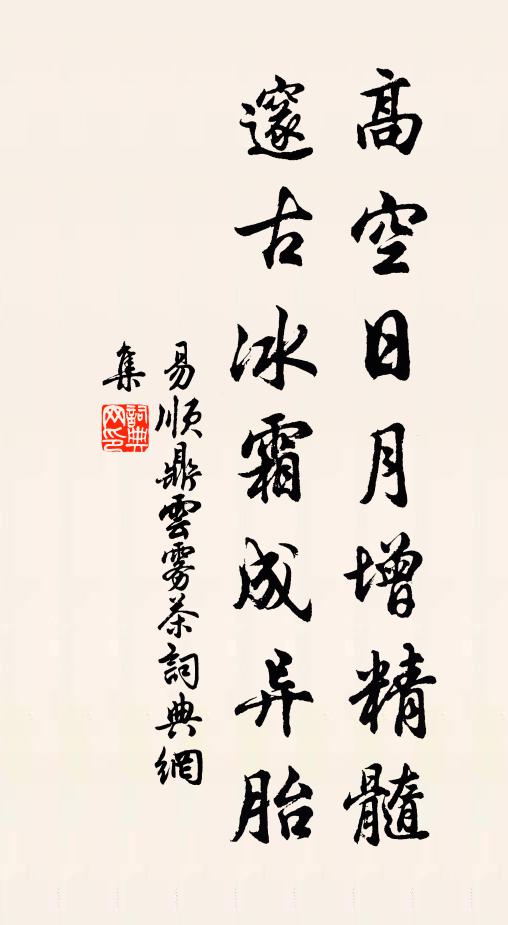 高空日月增精髓
邃古冰霜成异胎
易順鼎雲雾茶詞典網
集
詞典
网印